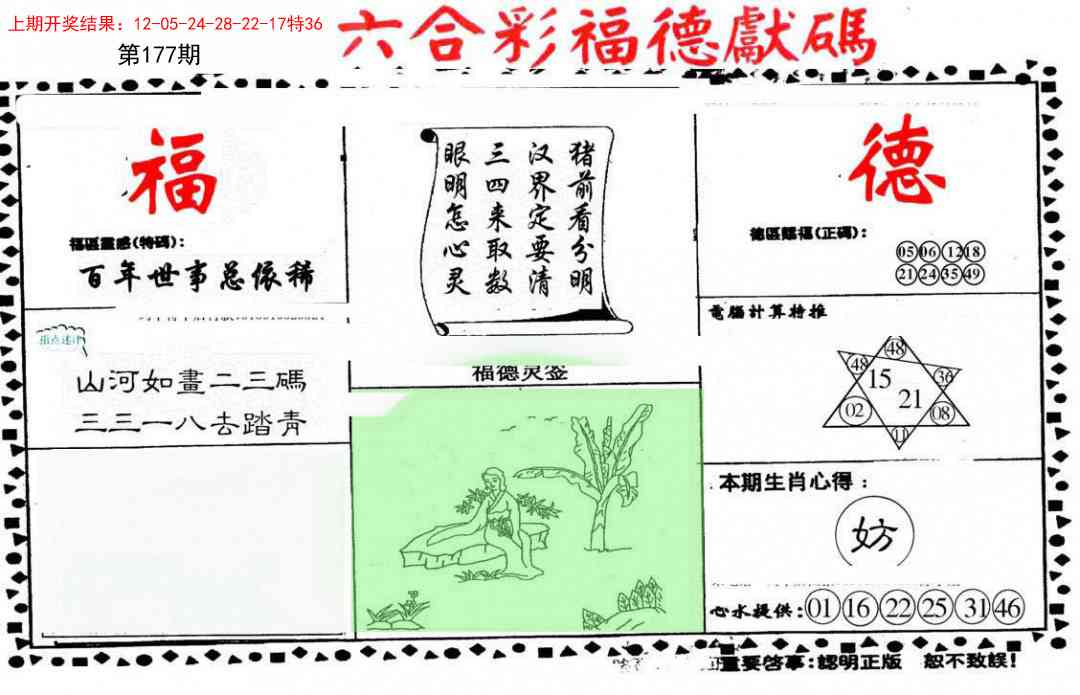 上期开奖结果：12-05-24-28-22-17特36
第177期
六合彩福德獻碼
福
福區靈感(特碼)：
百年世事总依稀
猪前看分明
汉界定要清
三四来取数
眼明怎心灵
德
德區賜福(正碼)：
05 06 12 18
21 24 35 49
山河如畫二三碼
三三一八去踏青
福德灵签
電腦計算特推
48
48 15 36
02 21 08
11
本期生肖心得：
妨
心水提供：01 16 22 25 31 46
重要啓事：認明正版 恕不致誤！